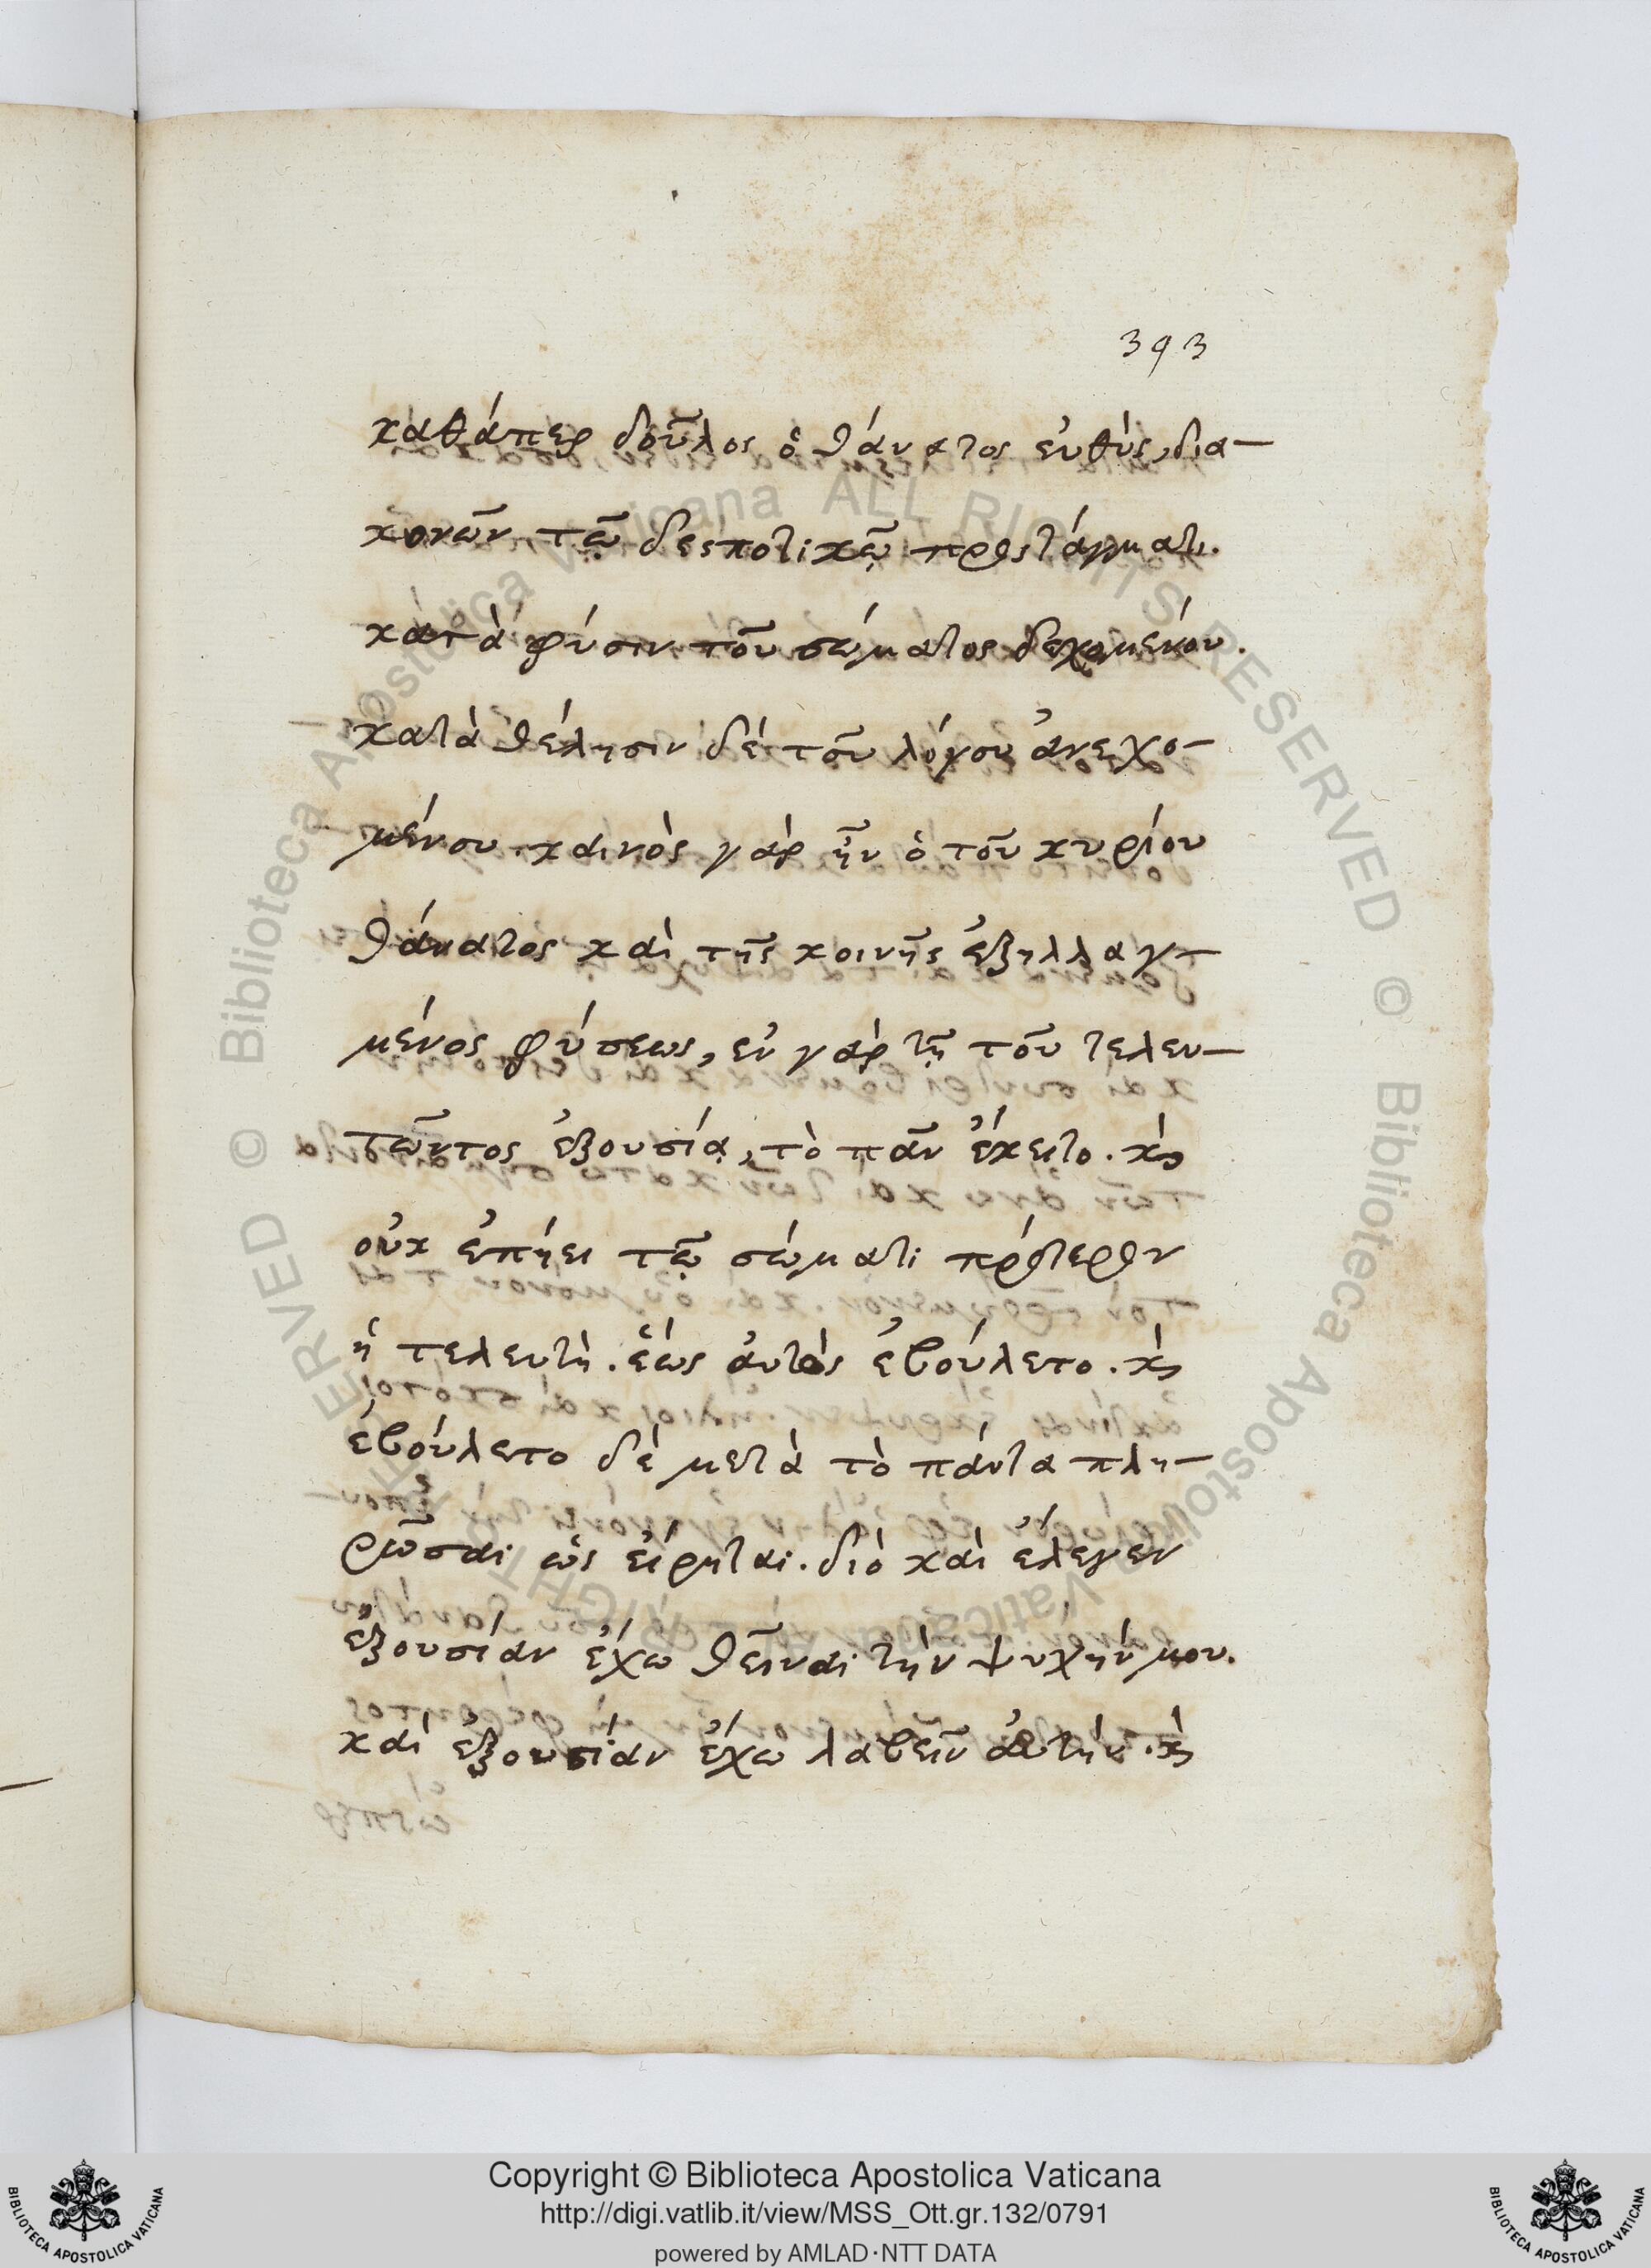 393
καθάπερ δοῦλος ὁ θάνατος εὐθὺς, δια-
κονῶν τῷ δεσποτικῷ προστάγματι.
κατὰ φύσιν τοῦ σώματος δεχομένου.
κατὰ θέλησιν δὲ τοῦ λόγου ἀνεχο-
μένου. καινὸς γὰρ ἦν ὁ τοῦ κυρίου
θάνατος καὶ τῆς κοινῆς ἐξηλλαγ-
μένος φύσεως, ἐν γὰρ τῇ τοῦ τελευ-
τῶντος ἐξουσίᾳ, τὸ πᾶν ἔκειτο. κ̀
οὐκ ἐπήει τῷ σώματι πρότερον
ἡ τελευτὴ. ἕως ἀυτὸς ἐβούλετο. κ̀
ἐβούλετο δὲ μετὰ τὸ πάντα πλη-
ρῶσαι ὡς εἴρηται. διὸ καὶ ἔλεγεν
ἐξουσίαν ἔχω θεῖναι τὴν ψυχήν μου.
καὶ ἐξουσίαν ἔχω λαβεῖν ἀυτήν. κ̀
© Biblioteca Apostolica Vaticana ALL RIGHTS RESERVED © Biblioteca Apostolica Vaticana ALL RIGHTS RESERVED
Copyright © Biblioteca Apostolica Vaticana
http://digi.vatlib.it/view/MSS_Ott.gr.132/0791
powered by AMLAD·NTT DATA
BIBLIOTECA APOSTOLICA VATICANA
BIBLIOTECA APOSTOLICA VATICANA